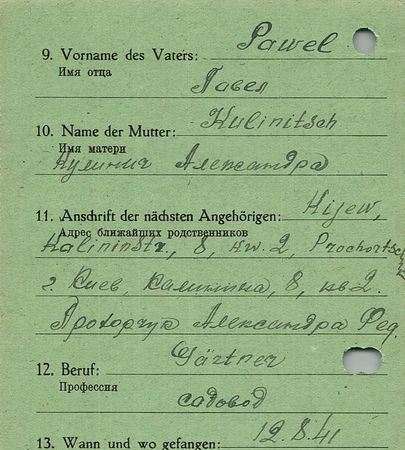 9. Vorname des Vaters: Pawel
Имя отца
Павел
10. Name der Mutter: Kulinitsch
Имя матери
Кулинич Александра
11. Anschrift der nächsten Angehörigen: Kijew,
Адрес ближайших родственников
Kalininstr., 8, kw. 2, Prochortschuk
г. Киев, Калинина, 8, кв 2.
Прохорчук Александра Фед.
12. Beruf: Gärtner
Профессия
садовод
13. Wann und wo gefangen: 12.8.41